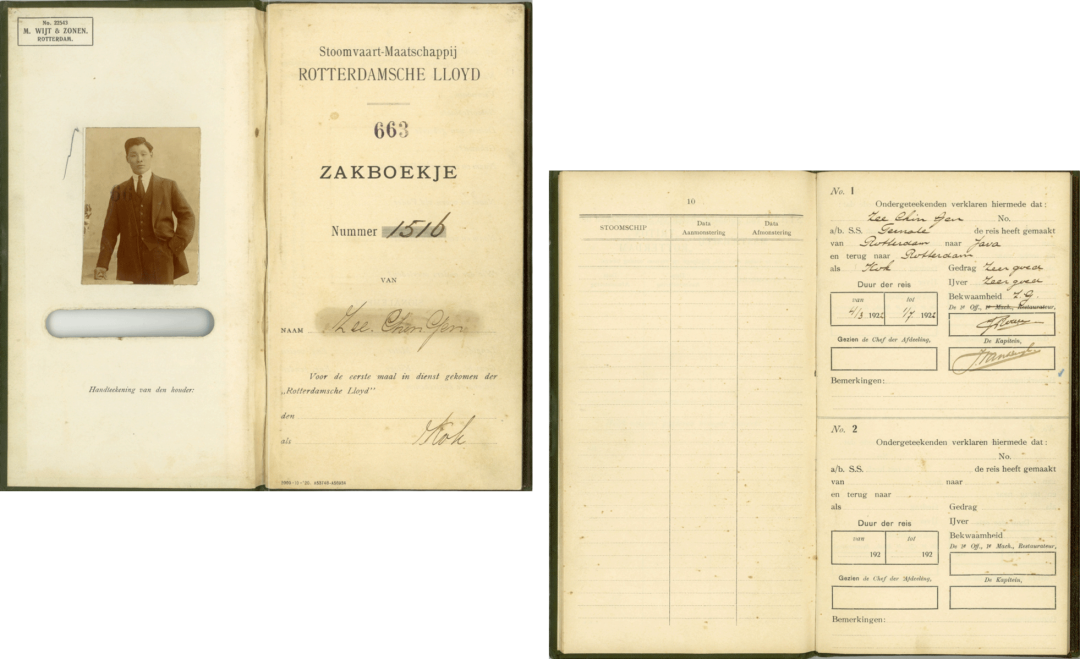 No. 22543
M. WIJT & ZONEN.
ROTTERDAM.
Handteekening van den houder:
Stoomvaart-Maatschappij
ROTTERDAMSCHE LLOYD
663
ZAKBOEKJE
Nummer 1516
VAN
NAAM Zee. Chin Jen
Voor de eerste maal in dienst gekomen der
„Rotterdamsche Lloyd”
den
als Kok
10
STOOMSCHIP Data Aanmonstering Data Afmonstering
No. 1
Ondergeteekenden verklaren hiermede dat:
Zee Chin Jen No.
a/b. S.S. de reis heeft gemaakt
van Rotterdam naar Java
en terug naar Rotterdam
als Kok Gedrag Zeer goed
IJver Zeer goed
Duur der reis Bekwaamheid Z.G.
De 1e Off., 1e Mach., Restaurateur,
van tot
4/3 192 1/7 192
Gezien de Chef der Afdeeling, De Kapitein,
Bemerkingen:
No. 2
Ondergeteekenden verklaren hiermede dat:
No.
a/b. S.S. de reis heeft gemaakt
van naar
en terug naar
als Gedrag
IJver
Duur der reis Bekwaamheid
De 1e Off., 1e Mach., Restaurateur,
van tot
192 192
Gezien de Chef der Afdeeling, De Kapitein,
Bemerkingen: